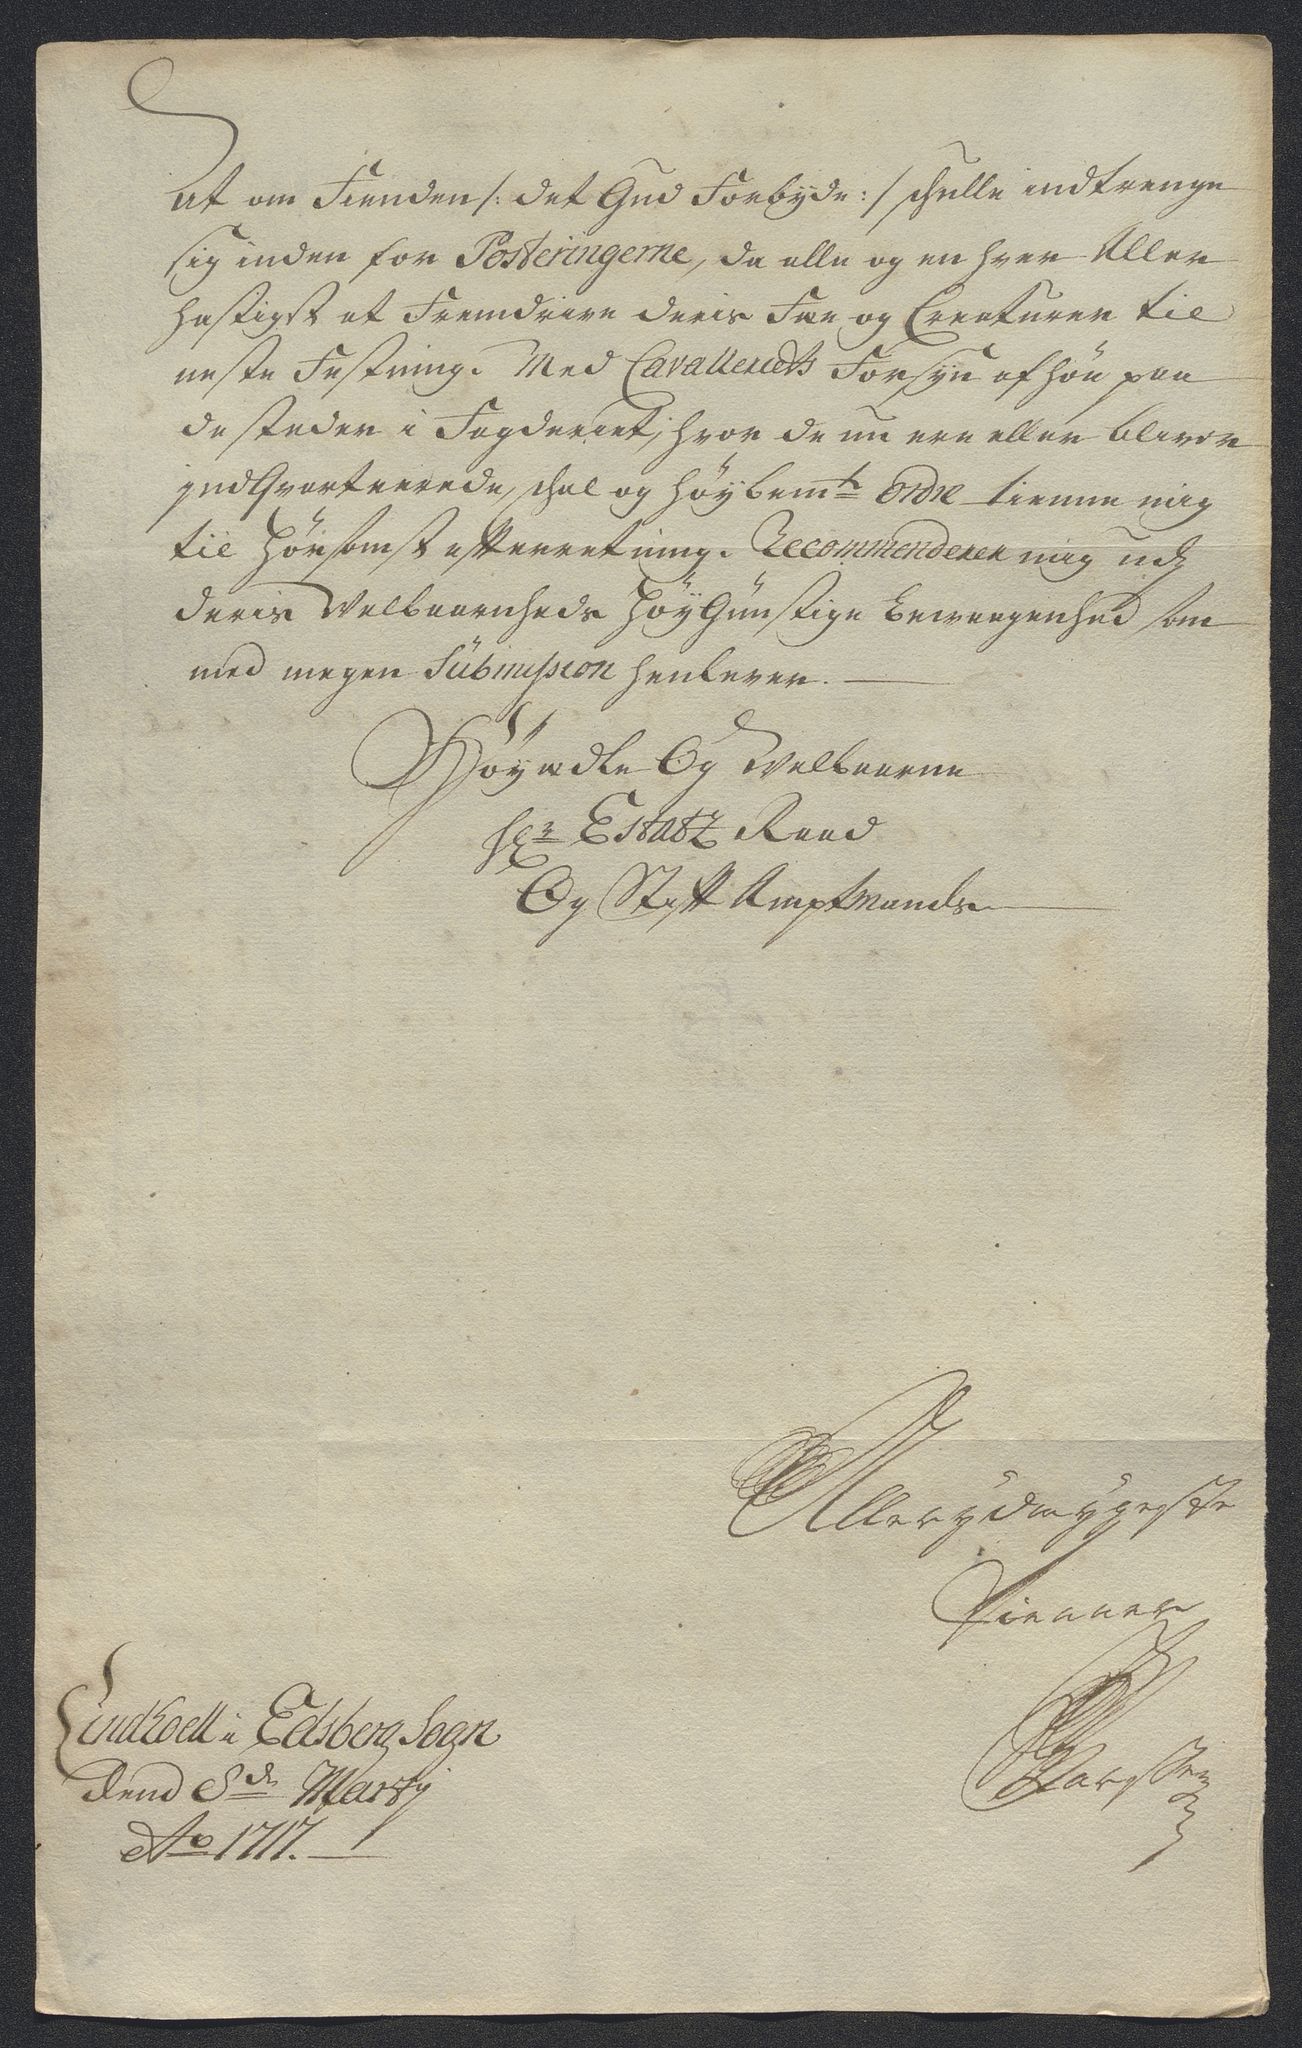 at om Fienden /: det Gud Forbyde :/ skulle indtrenge
sig inden for Posteringerne, da alle og en hver Aller
hastigst at Fremdrive deris Fæe og Creaturer til
neste Festning. Med Cavalleriets Forsyn af höe paa
de steder i Fogderiet, hvor de nu ere eller bliver
indqvarteerede, skal og höybemte Ordre tienne mig
til hörsomst efterretning. Recommenderer mig udj
deris Welbaarnheds HöyGünstige bevaagenhed som
med megen Sübmission henlever.
Höyædle Og Velbaarne
Hr Estatz Raad
Og Stift Amptmands
Allerydmygeste
Tienner
Lindhoell i Edsberg Sogn
dend 8de Marty
Ao 1717.